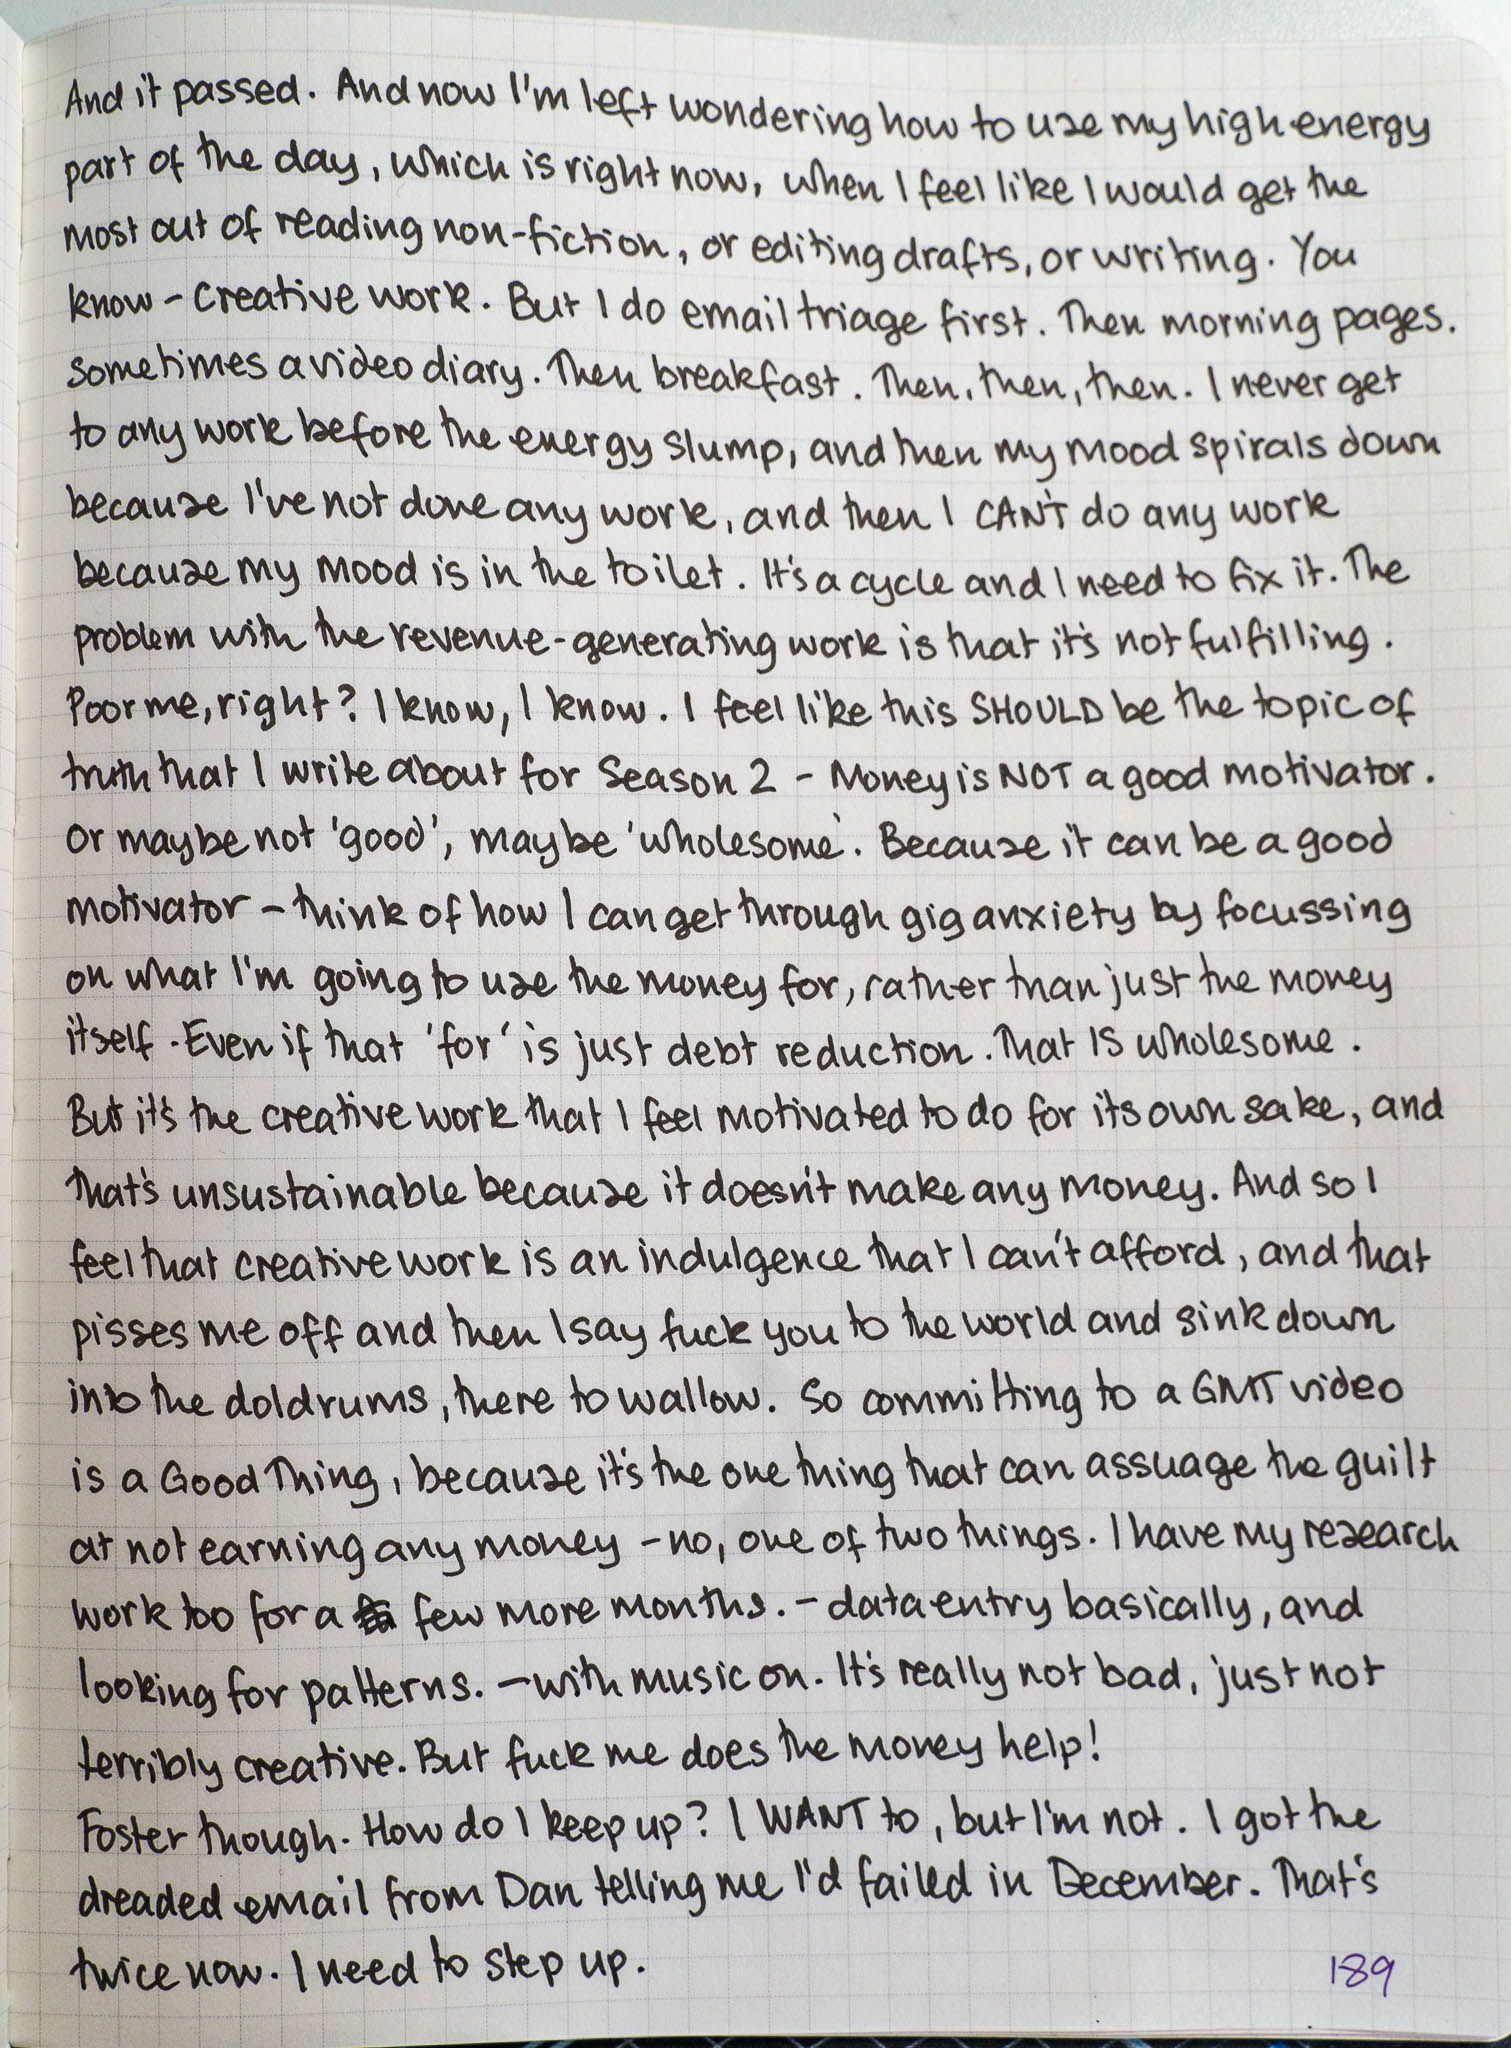 And it passed. And now I'm left wondering how to use my high energy
part of the day, which is right now, when I feel like I would get the
most out of reading non-fiction, or editing drafts, or writing. You
know - creative work. But I do email triage first. Then morning pages.
Sometimes a video diary. Then breakfast. Then, then, then. I never get
to any work before the energy slump, and then my mood spirals down
because I've not done any work, and then I CAN'T do any work
because my mood is in the toilet. It's a cycle and I need to fix it. The
problem with the revenue-generating work is that it's not fulfilling.
Poor me, right? I know, I know. I feel like this SHOULD be the topic of
truth that I write about for Season 2 - Money is NOT a good motivator.
Or maybe not 'good', maybe 'wholesome'. Because it can be a good
motivator - think of how I can get through gig anxiety by focussing
on what I'm going to use the money for, rather than just the money
itself. Even if that 'for' is just debt reduction. That IS wholesome.
But it's the creative work that I feel motivated to do for its own sake, and
that's unsustainable because it doesn't make any money. And so I
feel that creative work is an indulgence that I can't afford, and that
pisses me off and then I say fuck you to the world and sink down
into the doldrums, there to wallow. So committing to a GMT video
is a Good Thing, because it's the one thing that can assuage the guilt
at not earning any money - no, one of two things. I have my research
work too for a few more months. - data entry basically, and
looking for patterns. - with music on. It's really not bad, just not
terribly creative. But fuck me does the money help!
Foster though. How do I keep up? I WANT to, but I'm not. I got the
dreaded email from Dan telling me I'd failed in December. That's
twice now. I need to step up.
189